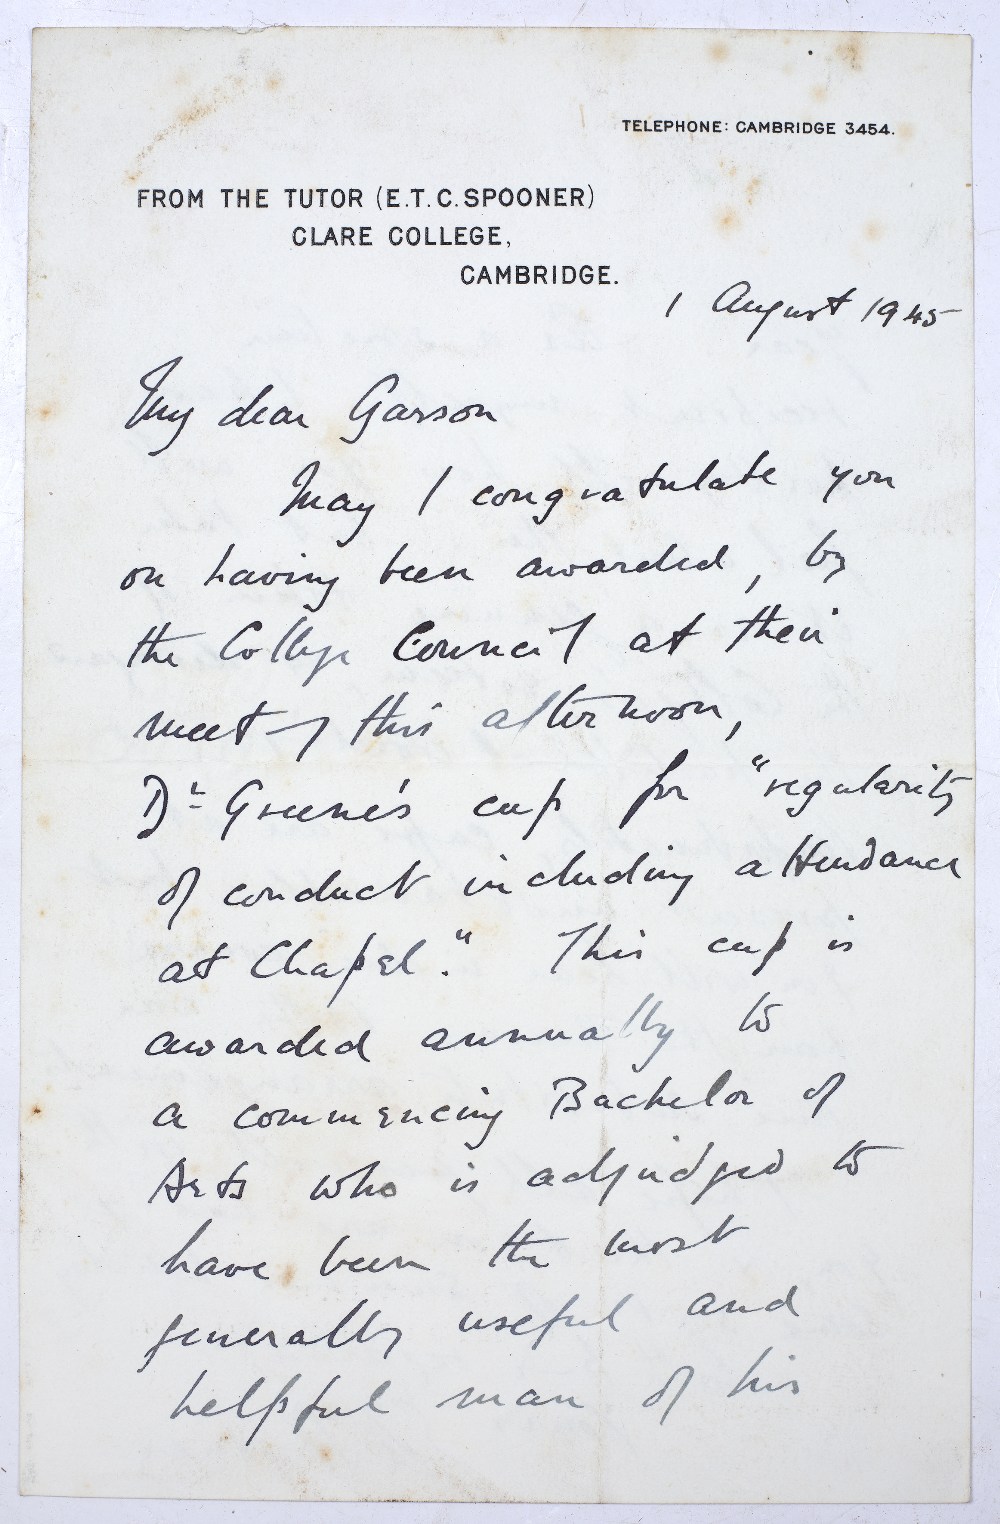 TELEPHONE: CAMBRIDGE 3454.
FROM THE TUTOR (E.T.C. SPOONER)
CLARE COLLEGE,
CAMBRIDGE.
1 August 1945
My dear Garson
May I congratulate you
on having been awarded, by
the College Council at their
meeting this afternoon,
Dr Greene's cup for "regularity
of conduct including attendance
at Chapel." This cup is
awarded annually to
a commencing Bachelor of
Arts who is adjudged to
have been the most
generally useful and
helpful man of his